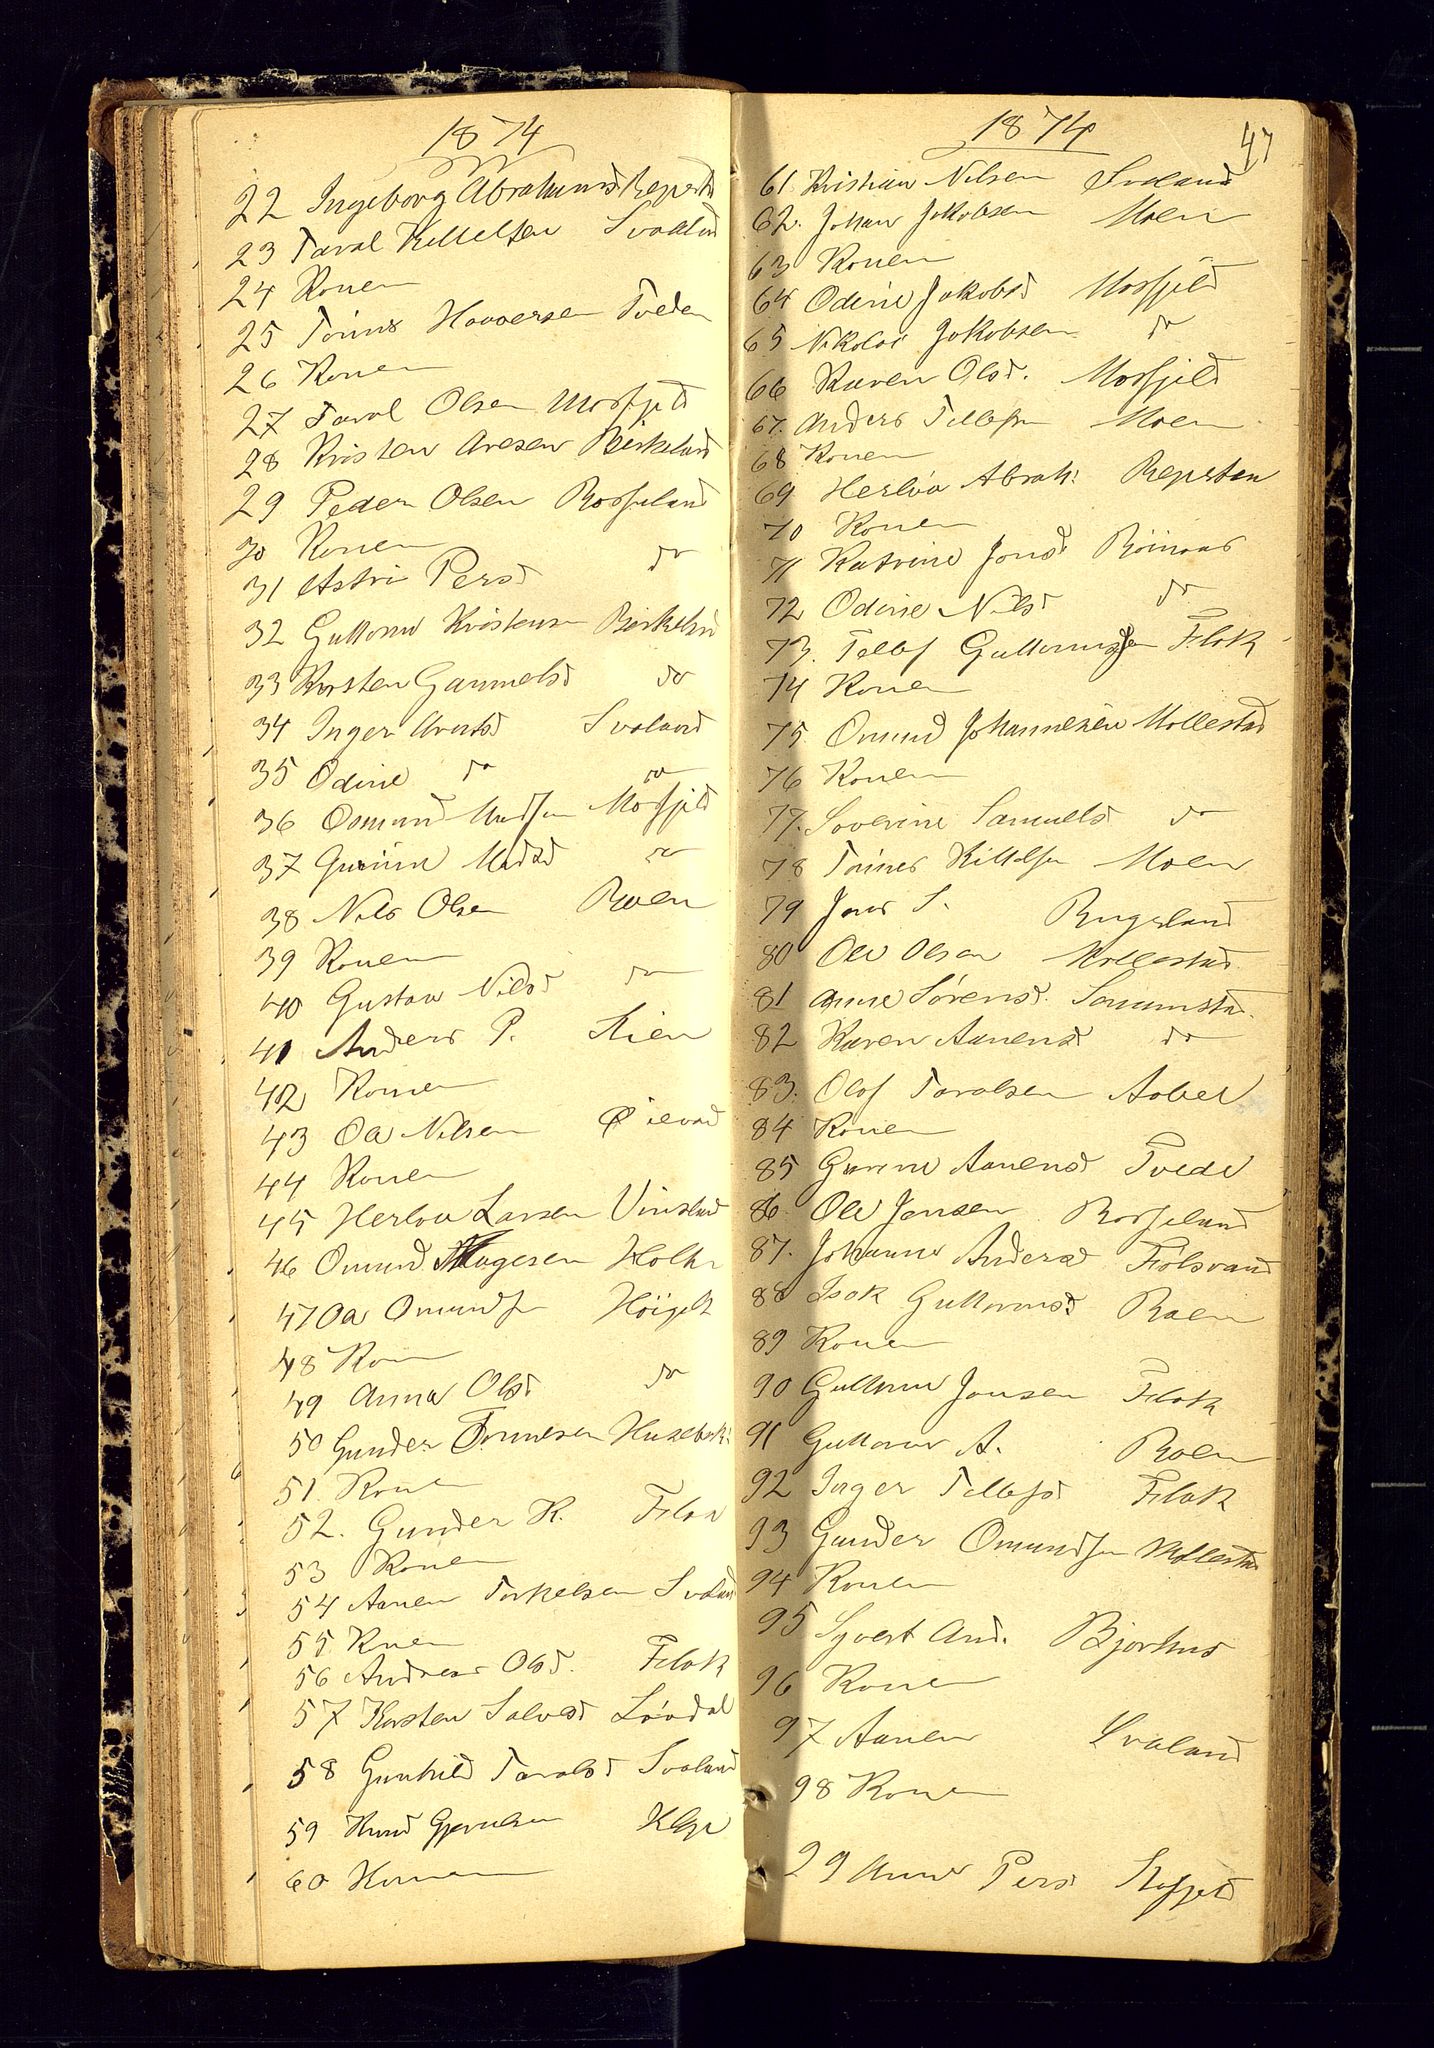 1874
22 Ingeborg Abrahamsd Repsta
23 Taral Kittelsen Svaland
24 Konen
25 Tønnes Haaversen Tveden
26 Konen
27 Taral Olsen Mosfjeld
28 Kristen Aresen Birkeland
29 Peder Olsen Rosseland
30 Konen
31 Astri Persd do
32 Guttorm Kristensen Birkeland
33 Karsten Gammelsd do
34 Inger Arentsd Svaland
35 Odine do do
36 Osmund Madsen Mosfjeld
37 Gunine Madsd do
38 Nils Olsen Roen
39 Konen
40 Gustav Nilsd do
41 Anders P. Lien
42 Konen
43 Ola Nilsen Øievad
44 Konen
45 Herlov Larsen Vinsland
46 Omund Aagesen
47 Ola Omundsen
48 Kon
49 Anna Olsd do
50 Gunder Tønnesen
51 Konen
52. Gunder K. Flak
53 Konen
54 Aanen Torkelsen Svaland
55 Konen
56 Andreas Olsd. Flak
57 Karsten Salvesd Løvdal
58 Gunhild Taralsd Svaland
59 Knud Gjerulsen
60 Konen
1874
47
61. Kristian Nilsen Svaland
62. Johan Jakobsen Moen
63 Konen
64 Odine Jakobsd Mosfjeld
65 Nikolai Jakobsen do
66 Karen Olsd. Mosfjeld
67. Anders Tellefsen Moen
68 Konen
69 Herlov Abrah: Repstan
70 Konen
71 Katrine Jensd Røinaas
72 Odine Nilsd do
73. Tellef Guttormsen Flak
74 Konen
75 Omund Johannesen Mollestad
76 Konen
77. Soverine Samuelsd do
78 Tønnes Kittelsen Moen
79 Jens S. Rugsland
80 Ole Olsen Mollestad
81 Anne Sørensd. Senumstad.
82 Karen Aanensd do
83. Olaf Taralsen Aabel
84 Konen
85 Gunine Aanensd Tvede
86 Ole Jensen Rosseland
87. Johanne Andersd Følsvand
88 Isak Guttormsd Roen
89 Konen
90 Guttorm Jensen Flak
91 Guttorm A. Roen
92 Inger Tellefsd Flak
93 Gunder Omundsen Mollestad
94 Konen
95 Syvert And. Bjorhus
96 Konen
97 Aanen Svaland
98 Konen
99 Anne Persd